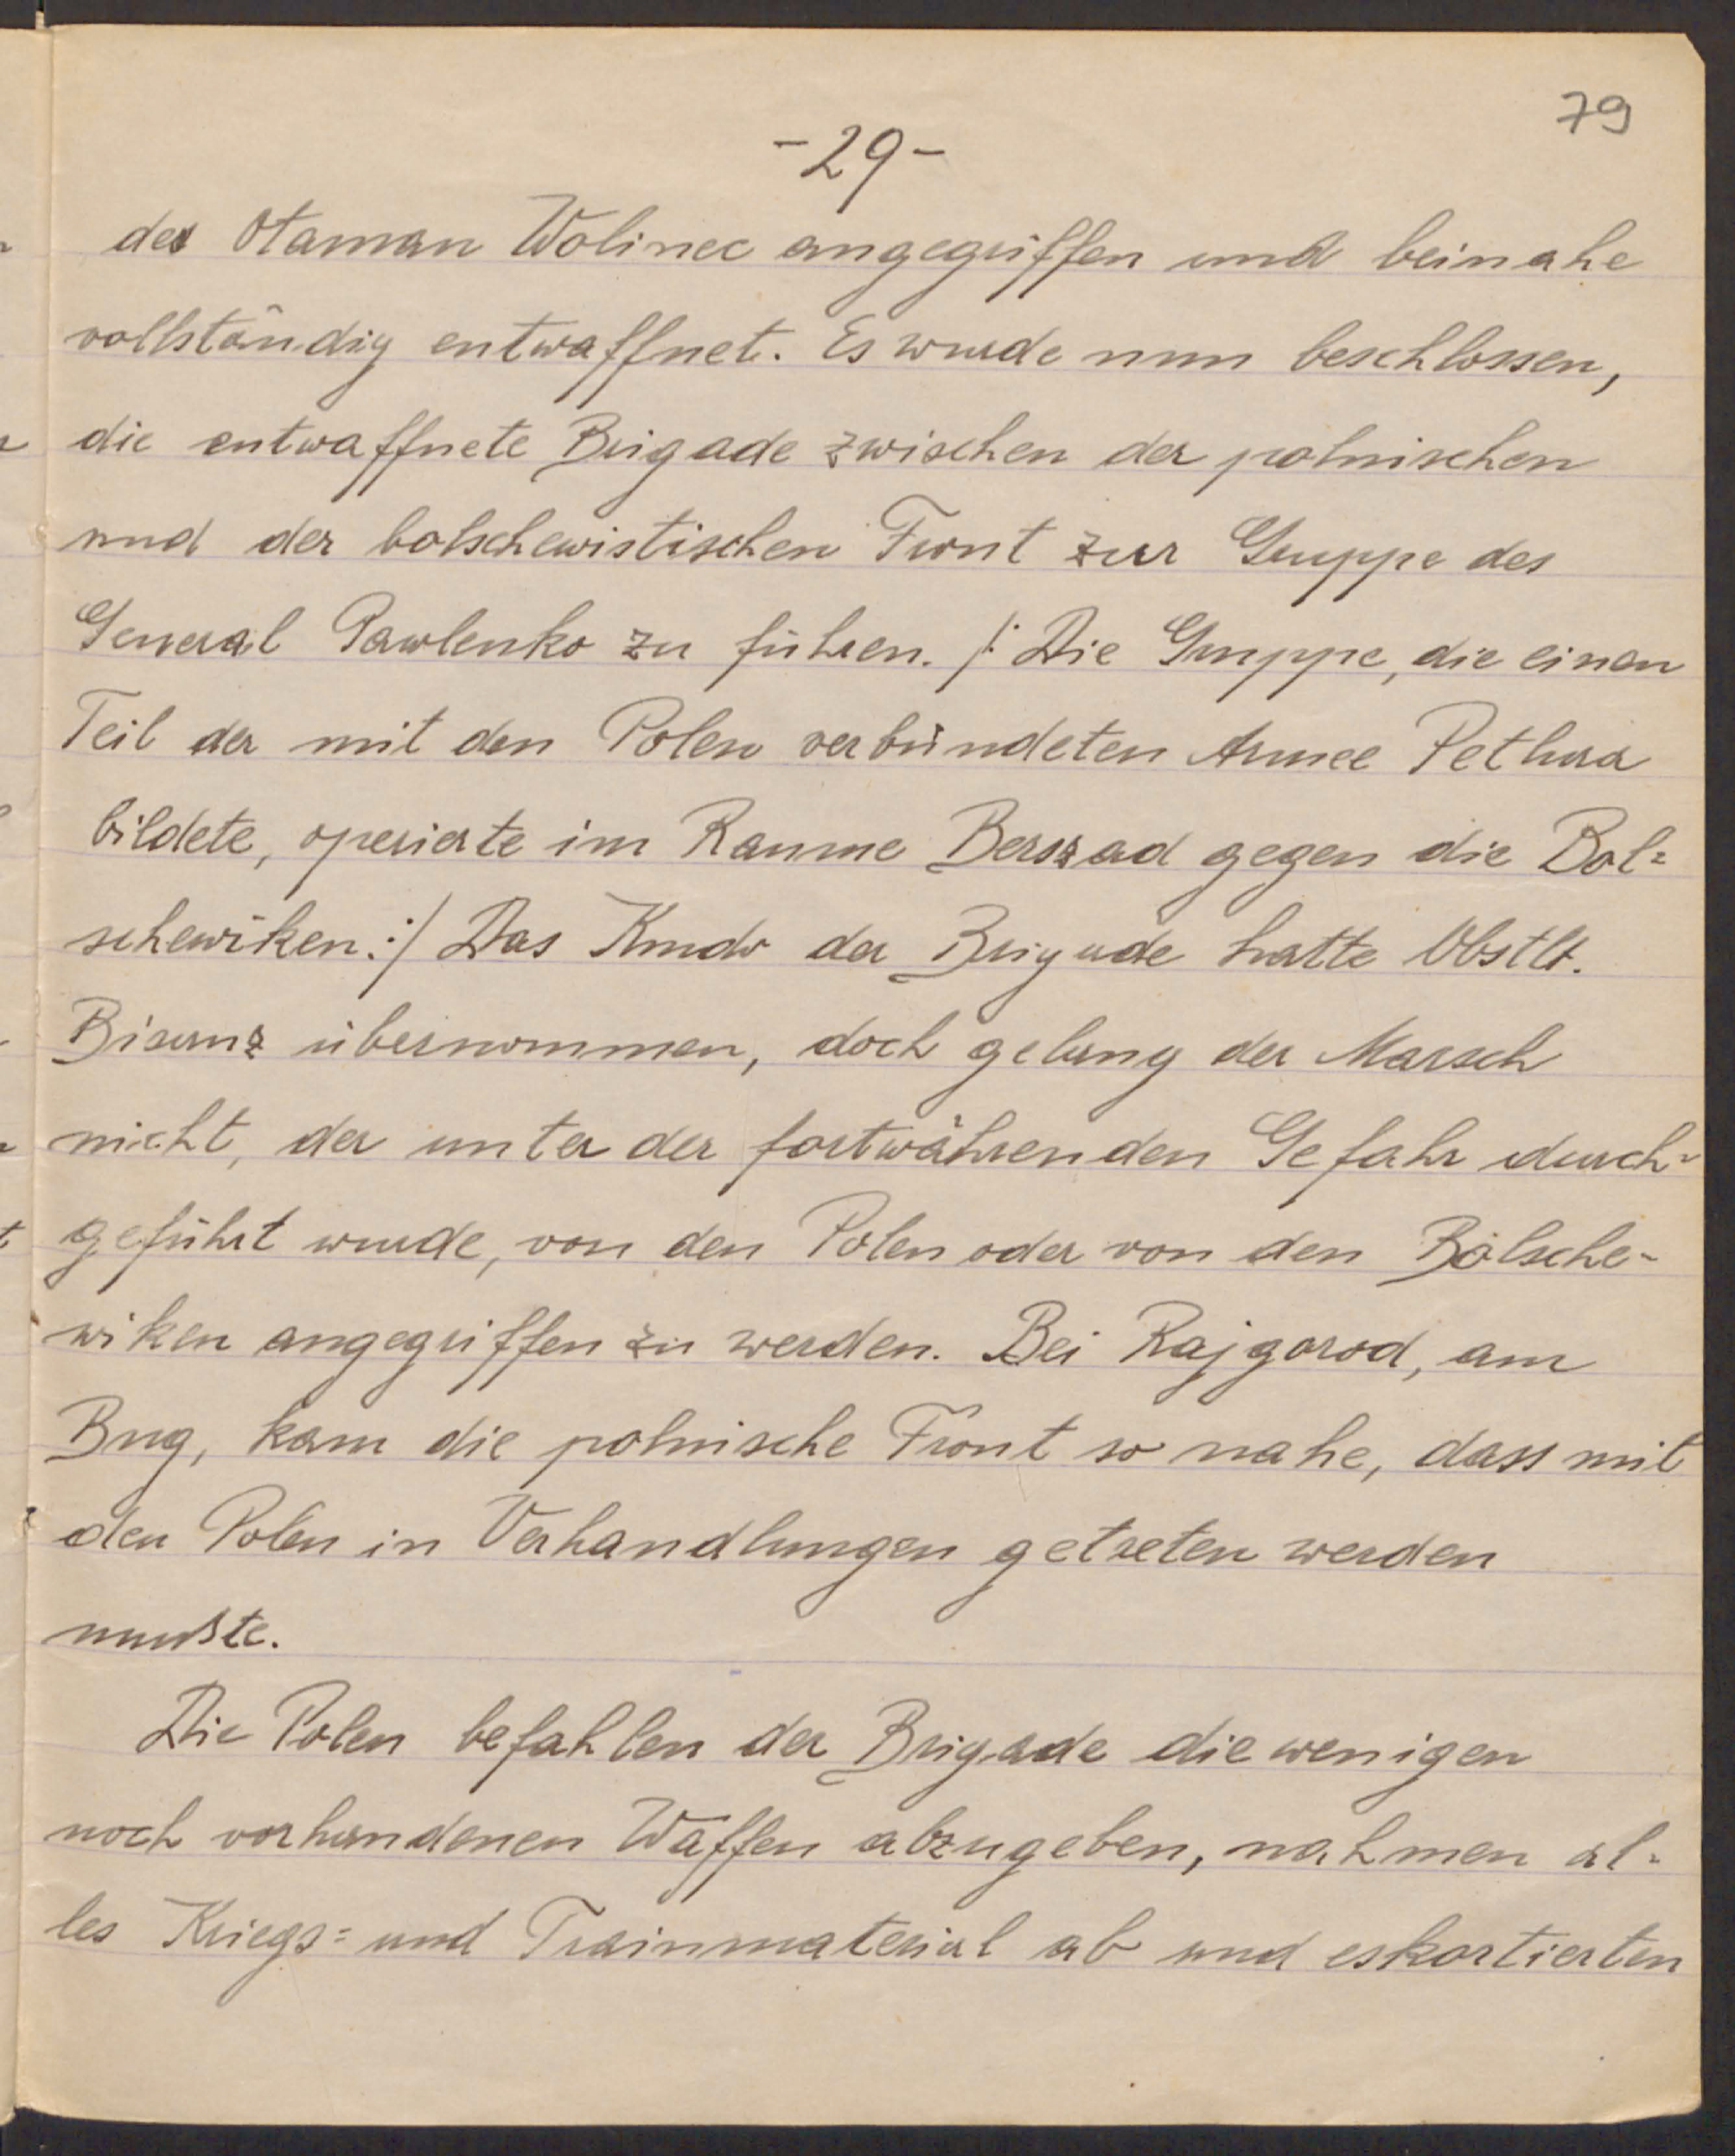 79
-29-
des Otaman Wolinec angegriffen und beinahe
vollständig entwaffnet. Es wurde nun beschlossen,
die entwaffnete Brigade zwischen der polnischen
und der bolschewistischen Front zur Gruppe des
General Pawlenko zu führen. /: Die Gruppe, die einen
Teil der mit den Polen verbündeten Armee Petlura
bildete, operierte im Raume Berszad gegen die Bol=
schewiken :/ Das Kmdo der Brigade hatte Obstlt.
Bisanz übernommen, doch gelang der Marsch
nicht, der unter der fortwährenden Gefahr durch=
geführt wurde, von den Polen oder von den Bolsche-
wiken angegriffen zu werden. Bei Rajgorod, am
Bug, kam die polnische Front so nahe, dass mit
den Polen in Verhandlungen getreten werden
mußte.
Die Polen befahlen der Brigade die wenigen
noch vorhandenen Waffen abzugeben, nahmen al=
les Kriegs= und Trainmaterial ab und eskortierten